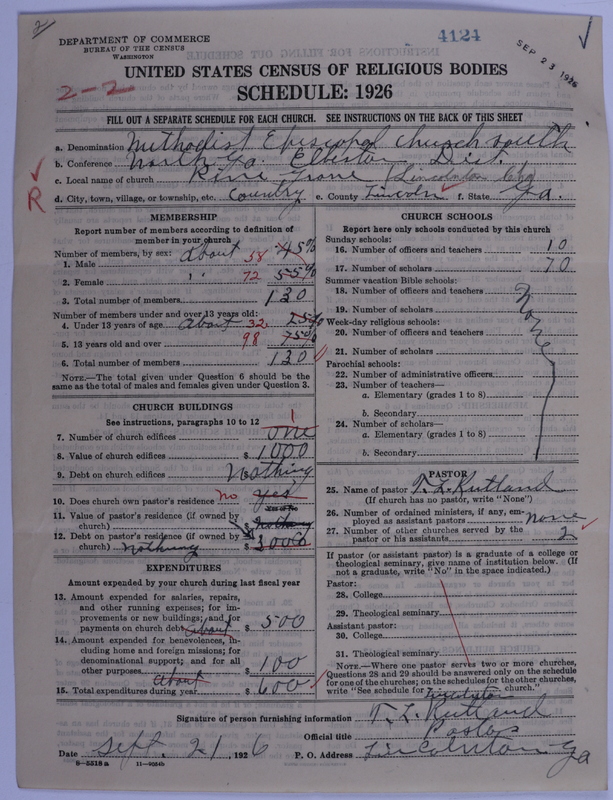 2
4124
SEP 23 1926
DEPARTMENT OF COMMERCE
BUREAU OF THE CENSUS
WASHINGTON
2-2
UNITED STATES CENSUS OF RELIGIOUS BODIES
SCHEDULE: 1926
FILL OUT A SEPARATE SCHEDULE FOR EACH CHURCH. SEE INSTRUCTIONS ON THE BACK OF THIS SHEET
a. Denomination Methodist Episcopal Church South
b. Conference North Ga. Elberton Dist.
c. Local name of church Pine Grove (Lincolnton Chg)
R
d. City, town, village, or township, etc. Country e. County Lincoln f. State Ga.
MEMBERSHIP
Report number of members according to definition of
member in your church
Number of members, by sex:
1. Male about 58 45%
2. Female " 72 55%
3. Total number of members 130
Number of members under and over 13 years old:
4. Under 13 years of age About 32 25%
5. 13 years old and over 98 75%
6. Total number of members 130
NOTE.—The total given under Question 6 should be
the same as the total of males and females given under Question 3.
CHURCH BUILDINGS
See instructions, paragraphs 10 to 12
7. Number of church edifices one 1
8. Value of church edifices $ 1000
9. Debt on church edifices Nothing
10. Does church own pastor's residence? no yes
Yes or No
11. Value of pastor's residence (if owned by
church) $ nothing
12. Debt on pastor's residence (if owned by
church) nothing $ 3000
EXPENDITURES
Amount expended by your church during last fiscal year
13. Amount expended for salaries, repairs,
and other running expenses; for im-
provements or new buildings; and for
payments on church debt about $ 500
14. Amount expended for benevolences, in-
cluding home and foreign missions; for
denominational support; and for all
other purposes $ 100
15. Total expenditures during year about $ 600
CHURCH SCHOOLS
Report here only schools conducted by this church
Sunday schools:
16. Number of officers and teachers 10
17. Number of scholars 70
Summer vacation Bible schools:
18. Number of officers and teachers
19. Number of scholars
None
Week-day religious schools:
20. Number of officers and teachers
21. Number of scholars
Parochial schools:
22. Number of administrative officers
23. Number of teachers—
a. Elementary (grades 1 to 8)
b. Secondary
24. Number of scholars—
a. Elementary (grades 1 to 8)
b. Secondary
PASTOR
25. Name of pastor T. L. Rutland
(If church has no pastor, write "None")
26. Number of ordained ministers, if any, em-
ployed as assistant pastors none
27. Number of other churches served by the
pastor or his assistants 2
If pastor (or assistant pastor) is a graduate of a college or
theological seminary, give name of institution below. (If
not a graduate, write "No" in the space indicated.)
Pastor:
28. College
29. Theological seminary
Assistant pastor:
30. College
31. Theological seminary
NOTE.—Where one pastor serves two or more churches,
Questions 28 and 29 should be answered only on the schedule
for one of the churches; on the schedules for the other churches,
write "See schedule for Lincolnton church."
Signature of person furnishing information T. L. Rutland
Official title Pastor
Date Sept. 21, 1926 P. O. Address Lincolnton Ga
6—5518a 11—9034b